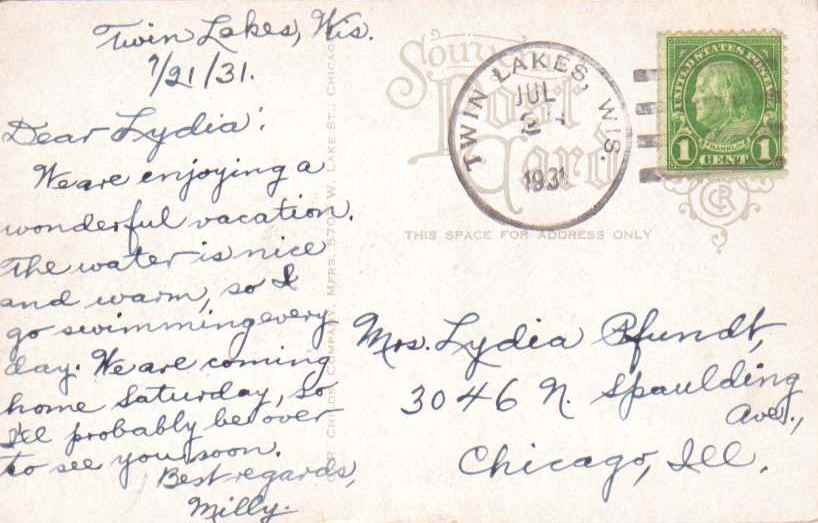 Twin Lakes, Wis.
7/21/31.
Dear Lydia:
We are enjoying a
wonderful vacation.
The water is nice
and warm, so I
go swimming every
day. We are coming
home Saturday, so
I'll probably be over
to see you soon.
Best regards,
Milly.
Souvenir
Post
Card
THIS SPACE FOR ADDRESS ONLY
TWIN LAKES, WIS.
JUL
1931
UNITED STATES POSTAGE
FRANKLIN
1 CENT 1
CR
Mrs. Lydia Pfundt,
3046 N. Spaulding
Ave.,
Chicago, Ill.
COMPANY, MFRS. W. LAKE ST., CHICAGO